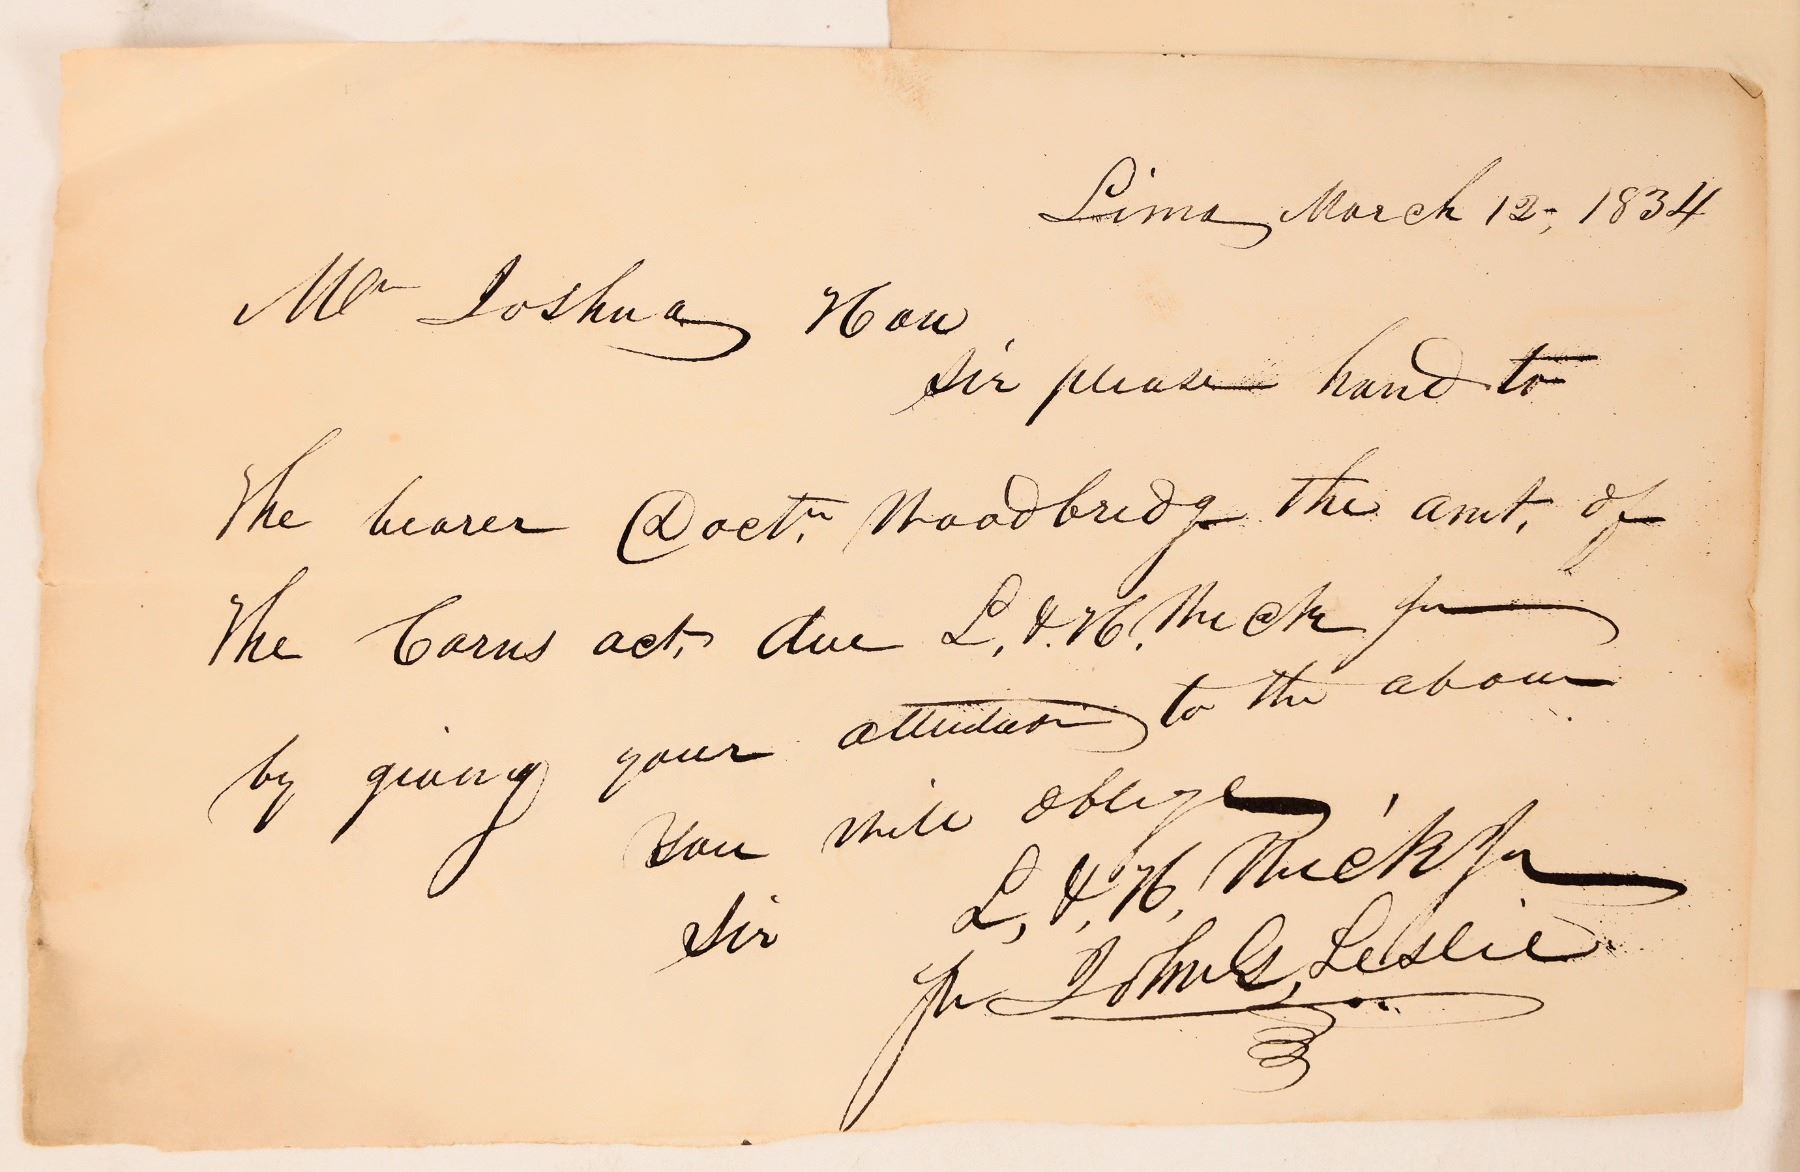 Lima March 12, 1834
Mr Joshua How
Sir please hand to
The bearer Doctr. Woodbridg the amt. of
The Carns act, due L, & H. Wick Jr
by giving your attention to the above
You will oblige
Sir L, & H, Wick Jr
pr John G, Leslie